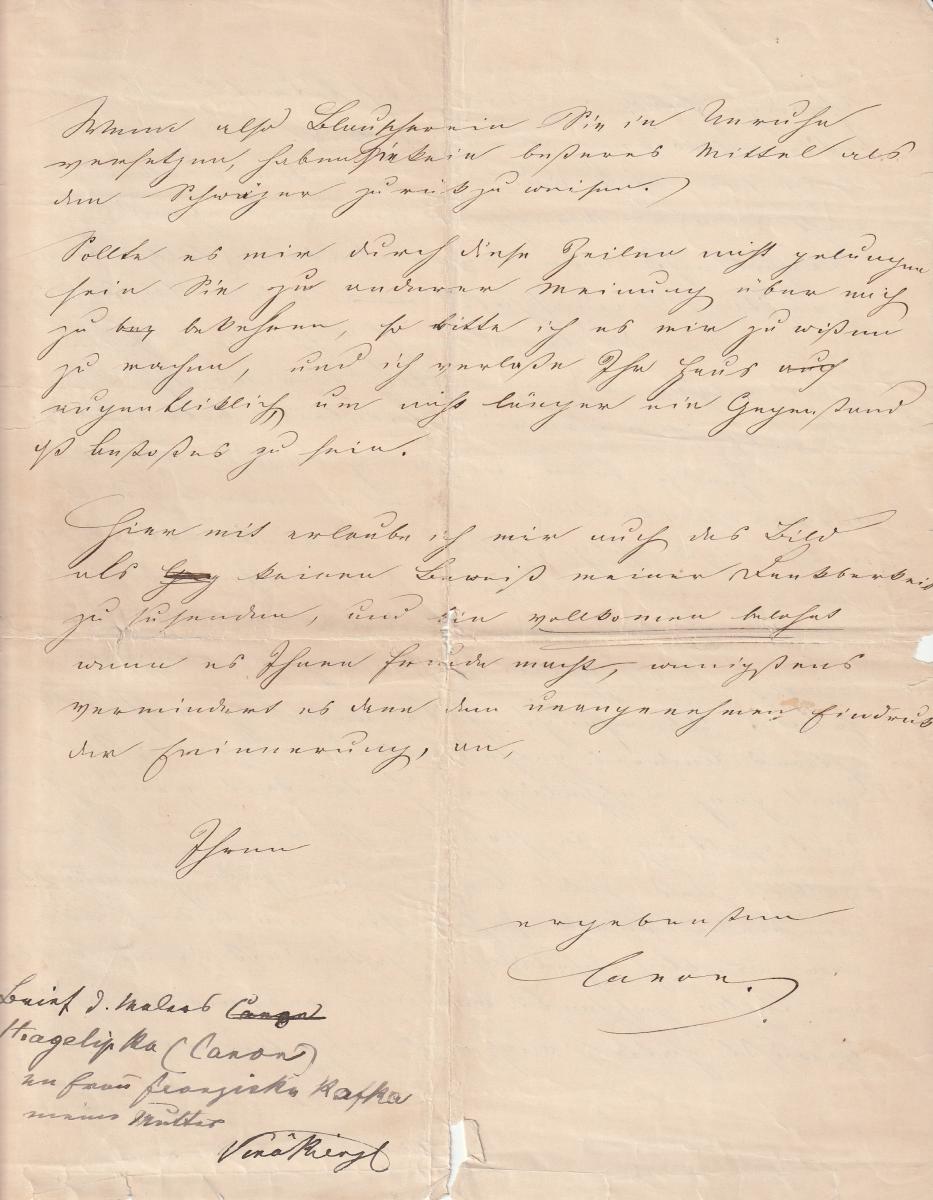 Wenn also Blauscherein Sie in Unruhe
versetzen, haben Sie kein beßeres Mittel als
den Schwäzer zurück zu weisen.
Sollte es mir durch diese Zeilen nicht gelungen
sein Sie zu anderer Meinung über mich
zu bekehren, so bitte ich es mir zu wißen
zu machen, und ich verlaße Ihr Haus auch
augenbliklich, um nicht länger ein Gegenstand
zu sein.
Hier mit erlaube ich mir auch das Bild
als keinen Beweiß meiner Dankbarkeit
zu susenden, und bin vollkomen belohnt
wenn es Ihnen Freude macht, wenigstens
vermindert es dann den unangenehmen Eindruk
der Erinnerung, an,
Ihren
ergebensten
Canon.
Brief d. Malers Canon
(Canon)
an Frau Franziska Kafka
meine Mutter